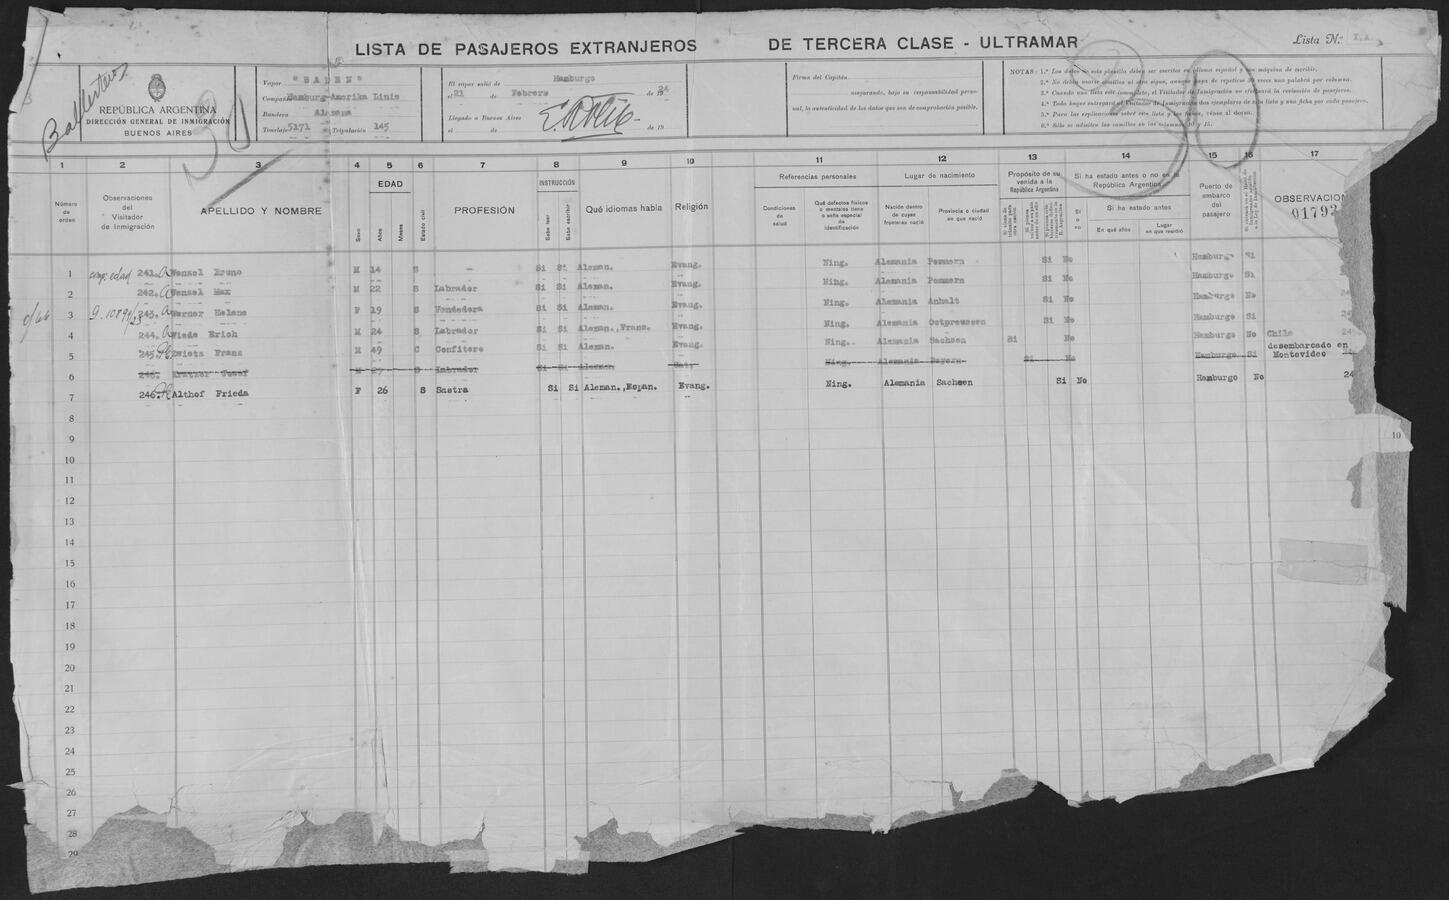 LISTA DE PASAJEROS EXTRANJEROS DE TERCERA CLASE - ULTRAMAR
Lista N.º
Ballesteros
30
30
REPÚBLICA ARGENTINA
DIRECCIÓN GENERAL DE INMIGRACIÓN
BUENOS AIRES
Vapor "BADEN"
Compañía Hamburg-Amerika Linie
Bandera Alemana
Tonelaje 5171 Tripulación 145
El vapor salió de Hamburgo
el 21 de Febrero de 1924
Llegado a Buenos Aires
el de de 19
Firma del Capitán
asegurando, bajo su responsabilidad personal, la autenticidad de los datos que son de comprobación posible.
NOTAS: 1.ª Los datos de esta planilla deben ser escritos en idioma español y con máquina de escribir.
2.ª No deben usarse comillas ni otro signo, aunque haya de repetirse 30 veces una palabra por columna.
3.ª Cuando una lista esté incompleta, el Visitador de Inmigración no efectuará la revisación de pasajeros.
4.ª Todo buque entregará al Visitador de Inmigración dos ejemplares de esta lista y una ficha por cada pasajero.
5.ª Para las explicaciones sobre esta lista y las fichas, véase al dorso.
6.ª Sólo se admiten las comillas en las columnas 10 y 15.
1 2 3 4 5 6 7 8 9 10 11 12 13 14 15 16 17
Número de orden
Observaciones del Visitador de Inmigración
APELLIDO Y NOMBRE
Sexo
EDAD
Años
Meses
Estado civil
PROFESIÓN
INSTRUCCIÓN
Sabe leer
Sabe escribir
Qué idiomas habla
Religión
Referencias personales
Condiciones de salud
Qué defectos físicos o mentales tiene o seña especial de identificación
Lugar de nacimiento
Nación dentro de cuyas fronteras nació
Provincia o ciudad en que nació
Propósito de su venida a la República Argentina
Si ha estado antes o no en la República Argentina
Si o no
Si ha estado antes
En qué años
Lugar en que residió
Puerto de embarco del pasajero
OBSERVACION
01792
1 comp. edad 241. Wenzel Bruno M 14 S - Si Si Aleman. Evang. Ning. Alemania Pommern Si No Hamburgo Si
2 242. Wenzel Max M 22 S Labrador Si Si Aleman. Evang. Ning. Alemania Pommern Si No Hamburgo Si
3 243. Werner Helene F 19 S Vendedora Si Si Aleman. Evang. Ning. Alemania Anhalt Si No Hamburgo No
4 244. Wiede Erich M 24 S Labrador Si Si Aleman., Franc. Evang. Ning. Alemania Ostpreussen Si No Hamburgo Si
5 245. Zwiets Franz M 49 C Confitero Si Si Aleman. Evang. Ning. Alemania Sachsen Si No Hamburgo No Chile desembarcado en Montevideo
6 246. Kratzer Josef M 29 S Labrador Si Si Aleman Kat. Ning. Alemania Bayern Si No Hamburgo Si
7 246. Althof Frieda F 26 S Sastra Si Si Aleman., Espan. Evang. Ning. Alemania Sachsen Si No Hamburgo No 24
8
9
10 10
11
12
13
14
15
16
17
18
19
20
21
22
23
24
25
26
27
28
29